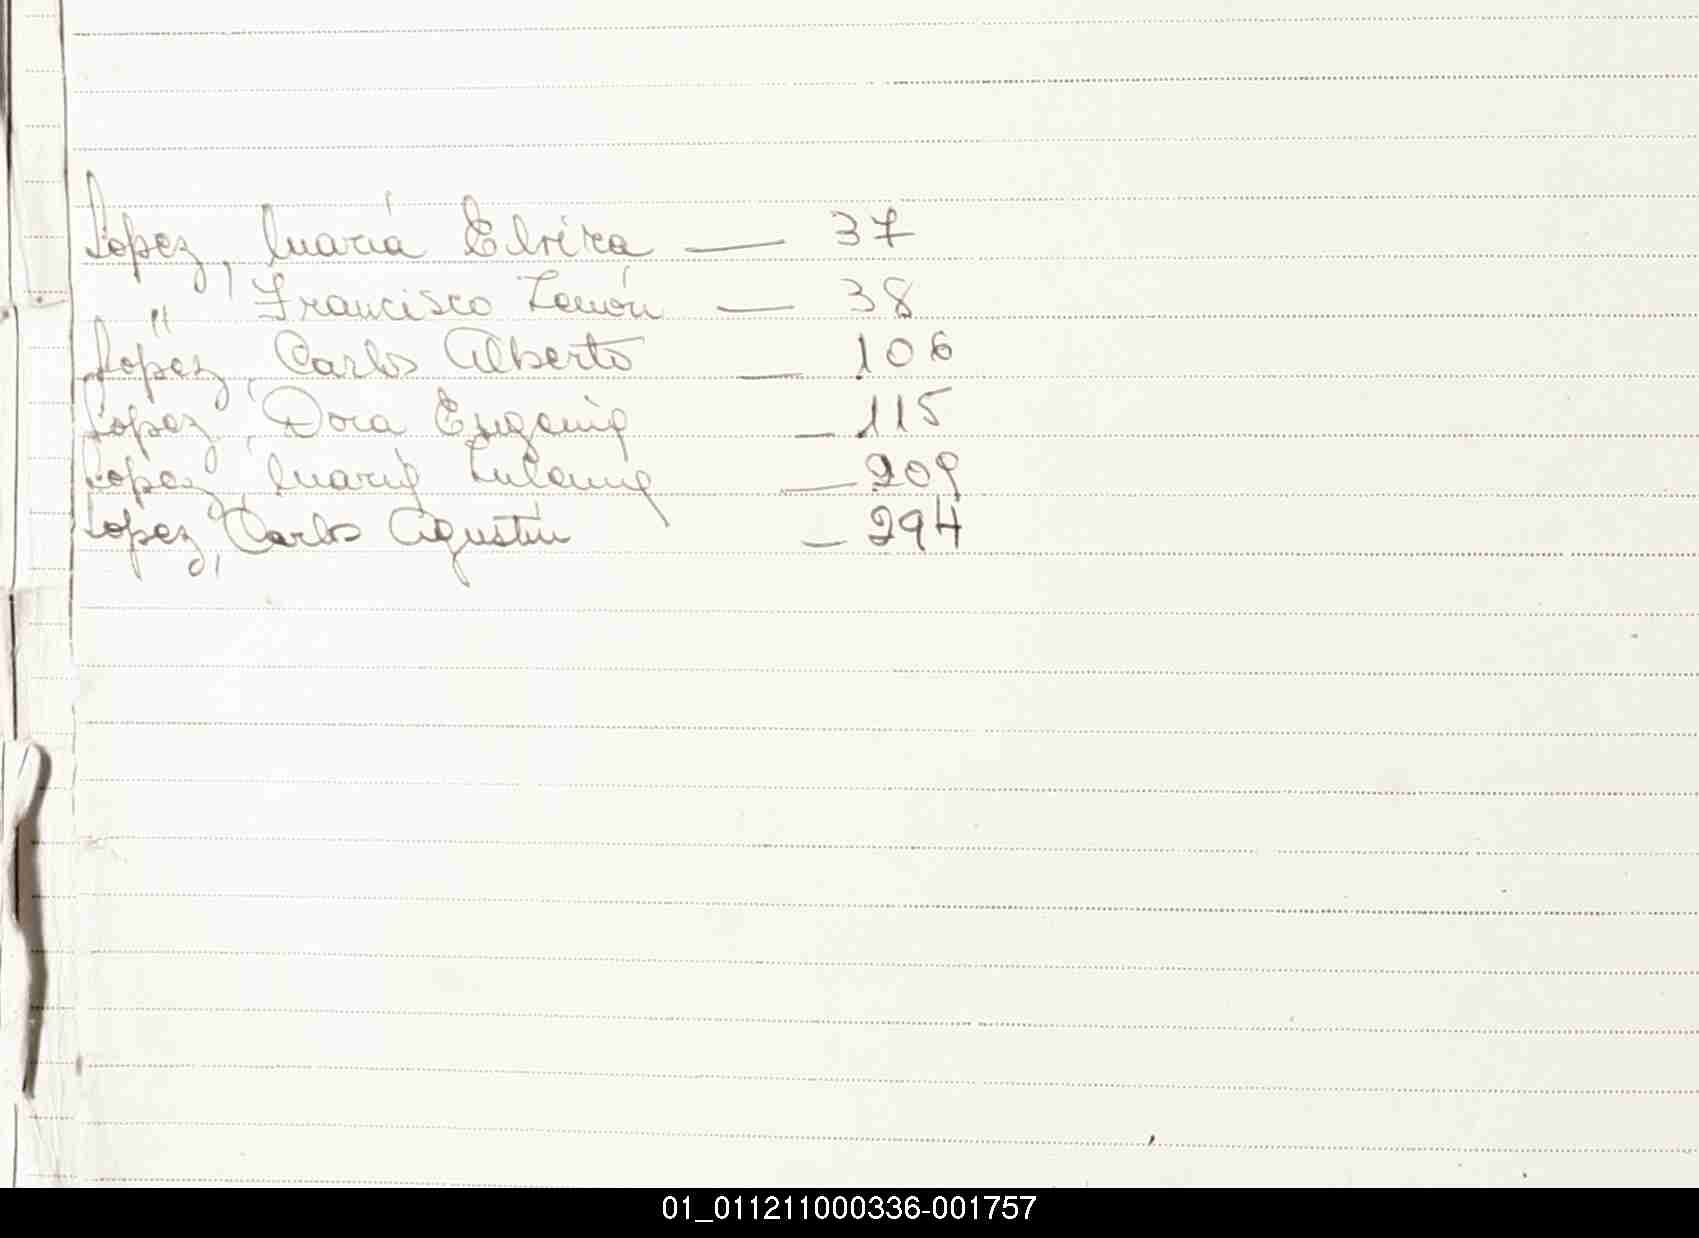 Lopez, María Elvira — 37
" , Francisco Zenón — 38
López, Carlos Alberto — 106
Lopez, Dora Eugenia — 115
Lopez, María — 209
Lopez, Carlos Agustín — 294
01_011211000336-001757